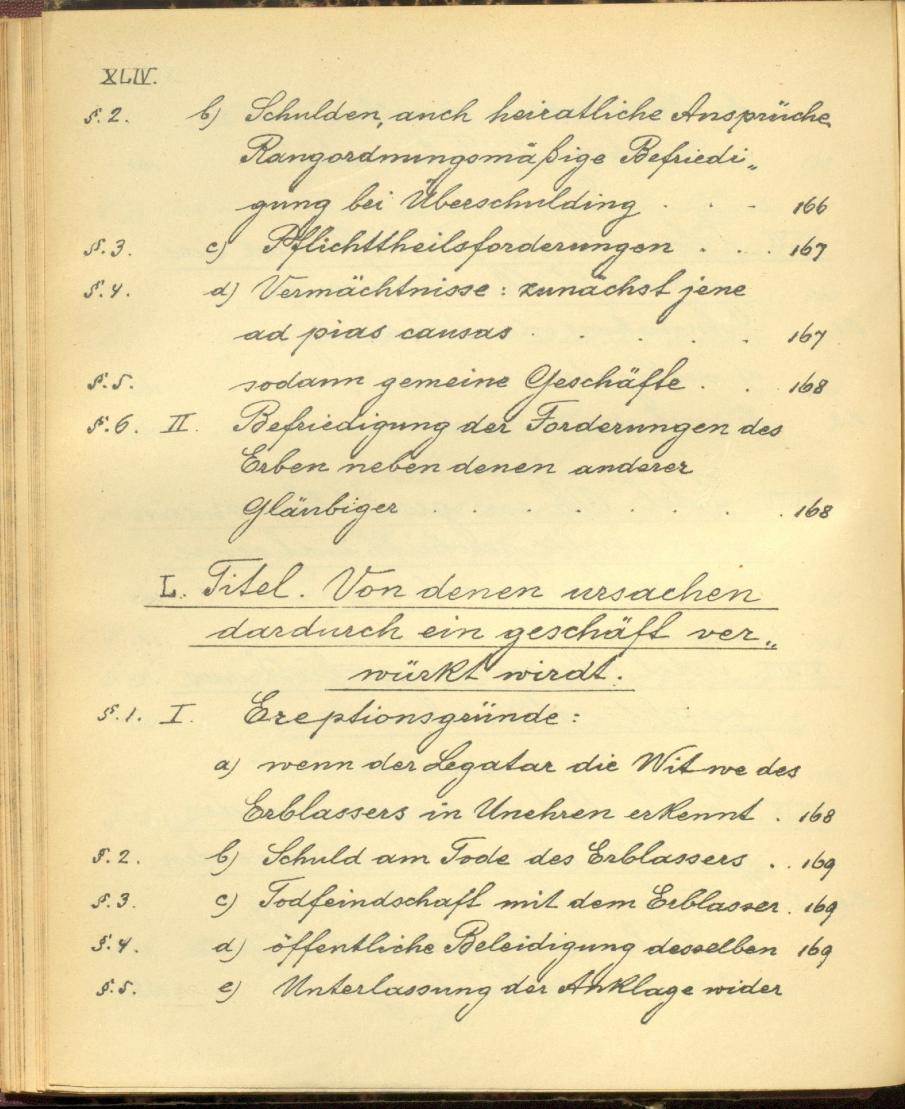 XLIV.
§. 2. b) Schulden, auch heiratliche Ansprüche
Rangordnungsmäßige Befriedi„
gung bei Überschulding . . . 166
§. 3. c) Pflichttheilsforderungen . . . 167
§. 4. d) Vermächtnisse: zunächst jene
ad pias causas . . . . . 167
§. 5. sodann gemeine Geschäfte . . 168
§. 6. II. Befriedigung der Forderungen des
Erben neben denen anderer
Gläubiger . . . . . . . . 168
L. Titel. Von denen ursachen
dardurch ein geschäft ver„
würkt wirdt.
§. 1. I. Ereptionsgründe:
a) wenn der Legatar die Witwe des
Erblassers in Unehren erkennt . 168
§. 2. b) Schuld am Tode des Erblassers . . 169
§. 3. c) Todfeindschaft mit dem Erblasser . 169
§. 4. d) öffentliche Beleidigung desselben 169
§. 5. e) Unterlassung der Anklage wider